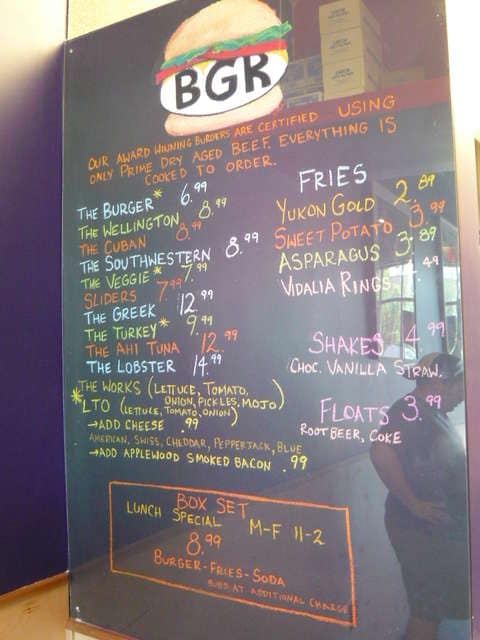 BGR
OUR AWARD WINNING BURGERS ARE CERTIFIED USING
ONLY PRIME DRY AGED BEEF. EVERYTHING IS
COOKED TO ORDER.
THE BURGER* 6.99
THE WELLINGTON 8.99
THE CUBAN 8.99
THE SOUTHWESTERN 8.99
THE VEGGIE* 7.99
SLIDERS 7.99
THE GREEK 12.99
THE TURKEY* 9.99
THE AHI TUNA 12.99
THE LOBSTER 14.99
THE WORKS (LETTUCE, TOMATO,
ONION, PICKLES, MOJO)
*LTO (LETTUCE, TOMATO, ONION)
→ADD CHEESE .99
AMERICAN, SWISS, CHEDDAR, PEPPERJACK, BLUE
→ADD APPLEWOOD SMOKED BACON .99
FRIES
YUKON GOLD 2.89
SWEET POTATO 3.99
ASPARAGUS 3.89
VIDALIA RINGS .49
SHAKES 4.99
CHOC. VANILLA STRAW.
FLOATS 3.99
ROOT BEER, COKE
BOX SET
LUNCH SPECIAL M-F 11-2
8.99
BURGER-FRIES-SODA
SUBS AT ADDITIONAL CHARGE